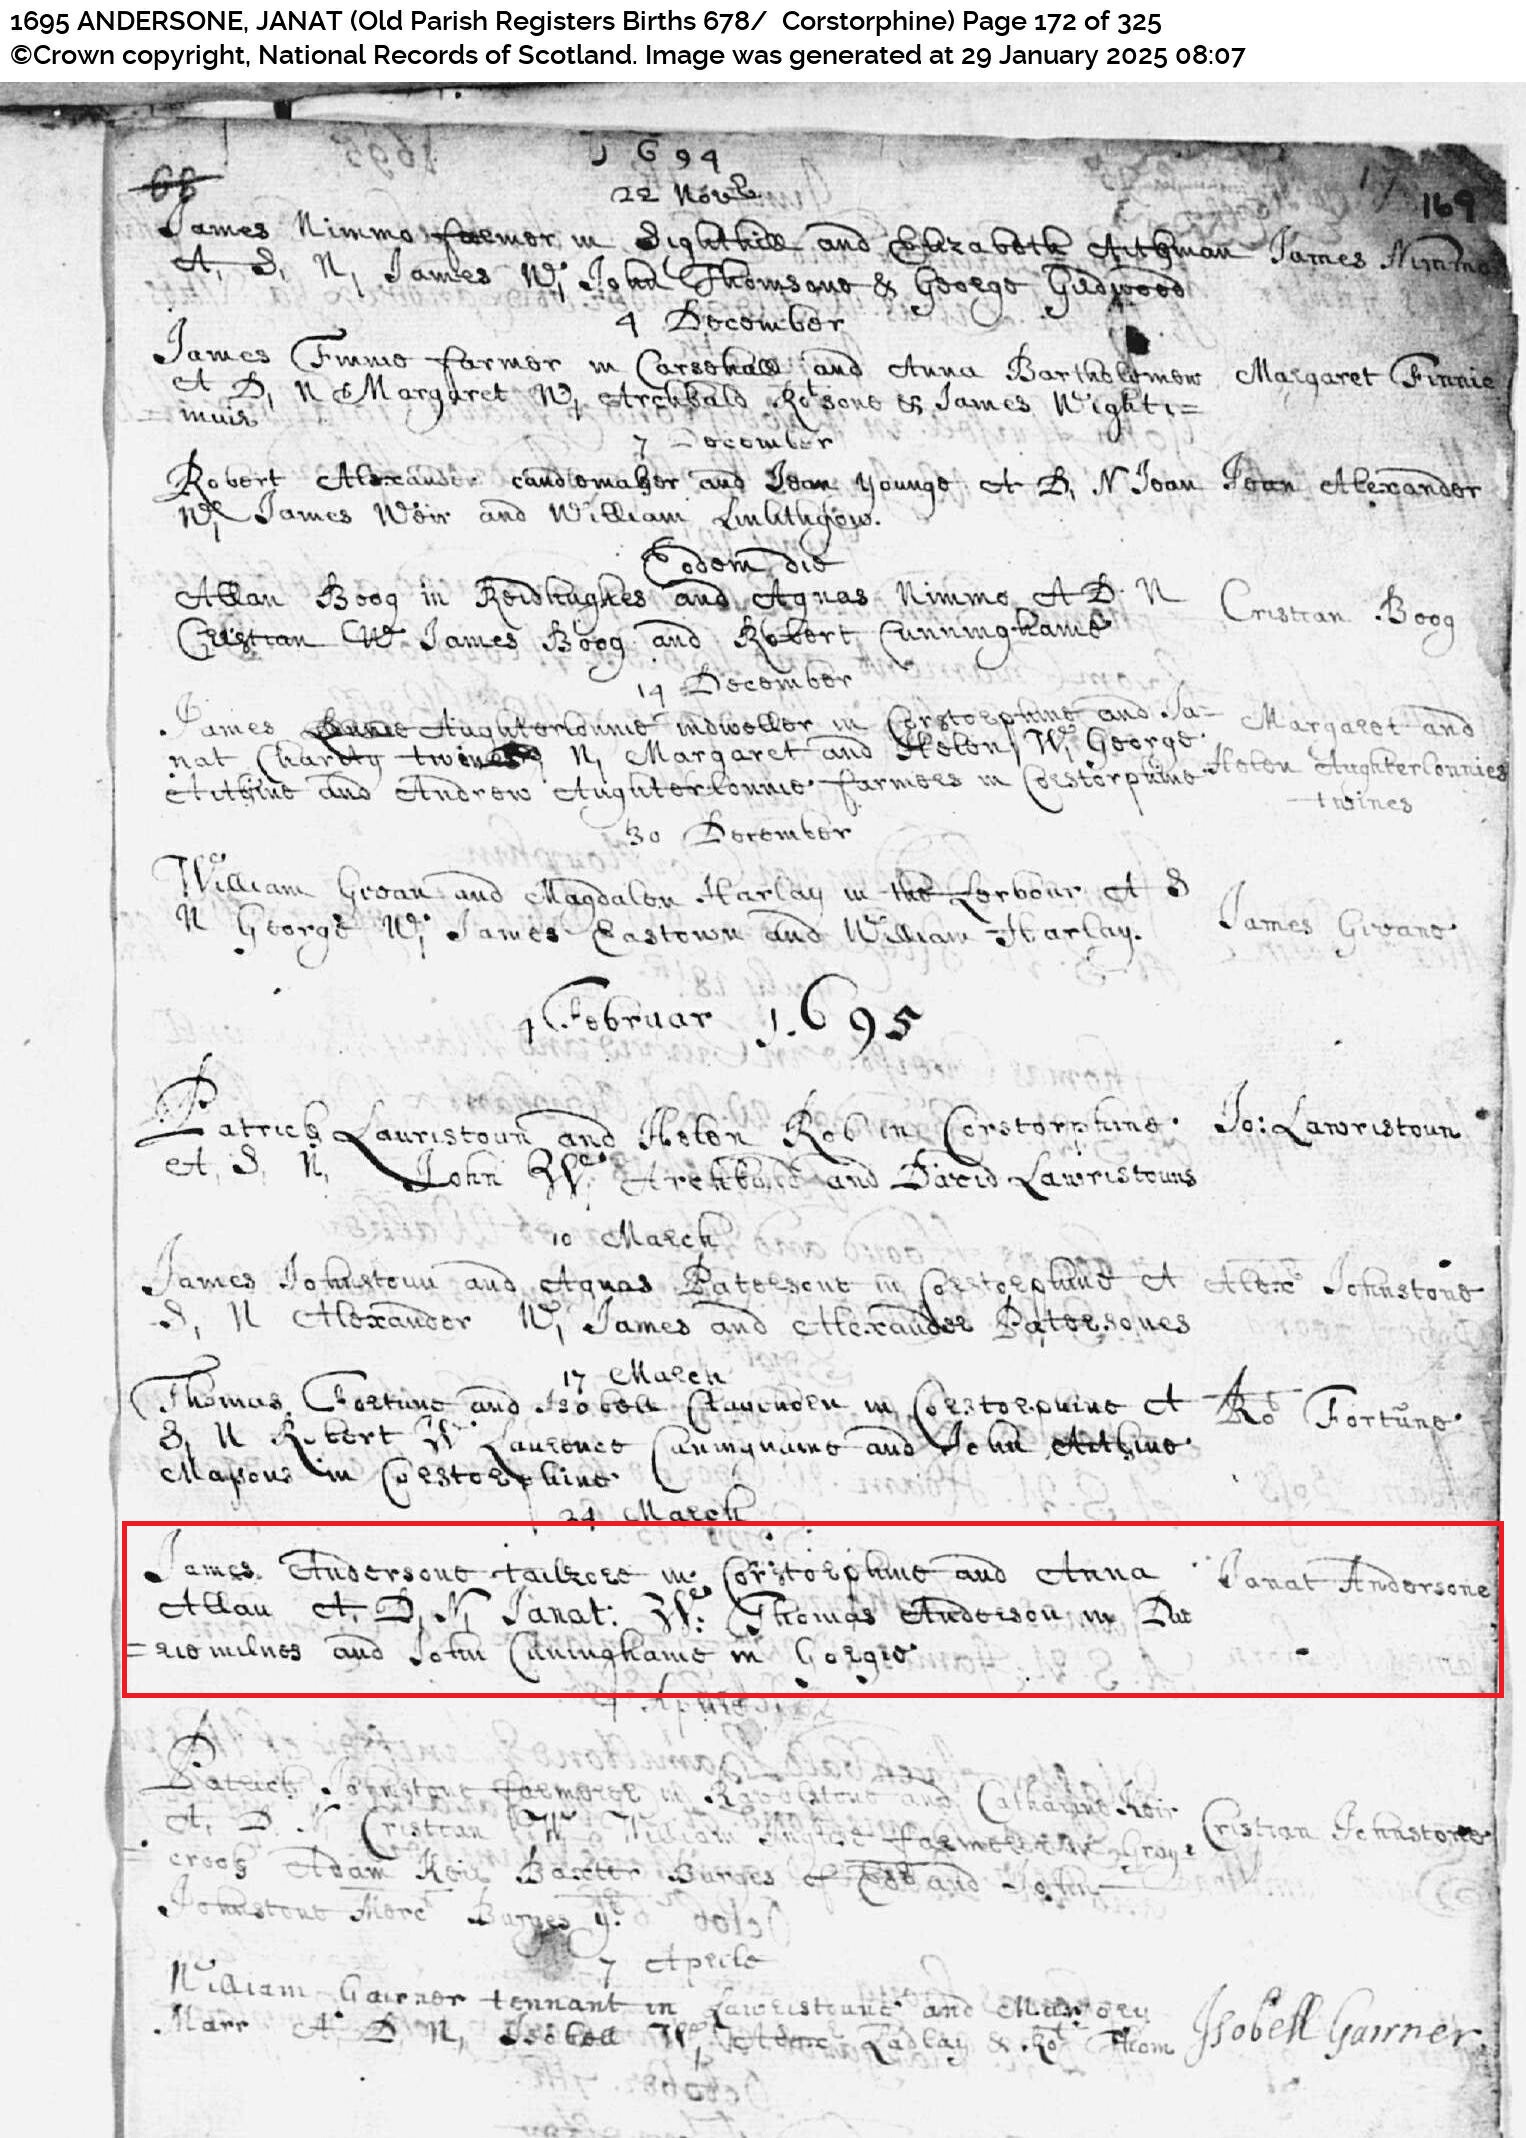 1695 ANDERSONE, JANAT (Old Parish Registers Births 678/ Corstorphine) Page 172 of 325
©Crown copyright, National Records of Scotland. Image was generated at 29 January 2025 08:07
1694
68
169
22 Novb
James Nimmo farmer in Sighthill and Elizabeth Aithman James Nimmo
A, S, N, James W, John Thomsone & George Gudwood
4 December
James Finnie farmer in Carsehall and Anna Bartholomew Margaret Finnie
A D, N Margaret W, Archbald Robsone & James Wight=
=muir
7 December
Robert Alexander candlemaker and Jean Younge A D, N Jean Jean Alexander
W James Weir and William Linlithgow.
Eodem die
Allan Boog in Reidhughes and Agnas Nimmo A D N Cristian Boog
Cristian W James Boog and Robert Cunninghame
14 December
James Aughterlonnie indweller in Corstorphine and Ja= Margaret and
nat Charity twines N, Margaret and Helen, W, George Helen Aughterlonnies
Aithine and Andrew Aughterlonnie farmers in Corstorphine twines
30 December
William Givan and Magdalen Harlay in the Lerbour A S
N George W, James Eastown and William Harlay. James Givane
1 Februar 1695
Patrick Lauristoun and Helen Rob in Corstorphine Jo: Lawristoun
A, S, N, John W. Archbald and David Lawristouns
10 March
James Johnstoun and Agnas Patersone in Corstorphine A Alexr Johnstone
S, N Alexander W, James and Alexander Patersones
17 March
Thomas Fortune and Isobell in Corstorphine A Rob Fortune
S, N Robert W Laurence Cuningname and John Aithine
Masons in Corstorphine
24 March
James Andersone tailzore in Corstorphine and Anna Janat Andersone
Allan A, D, N, Janat: W: Thomas Anderson in Dal
=riemilnes and John Cuninghame in Gorgie
Aprile
Patrick Johnstone farmorer in Ravelstone and Catharine Keir
A, D, N, Cristian W William farmorer in Gray= Cristian Johnstone
=crook Adam Keir Baxter Burges of and John
Johnstone Merct Burges yr.
7 Aprile
William Gairner tennant in Lawristoune and Marjory
Marr A D N, Isobell W, Ladlay & Rot Thom Isobell Gairner